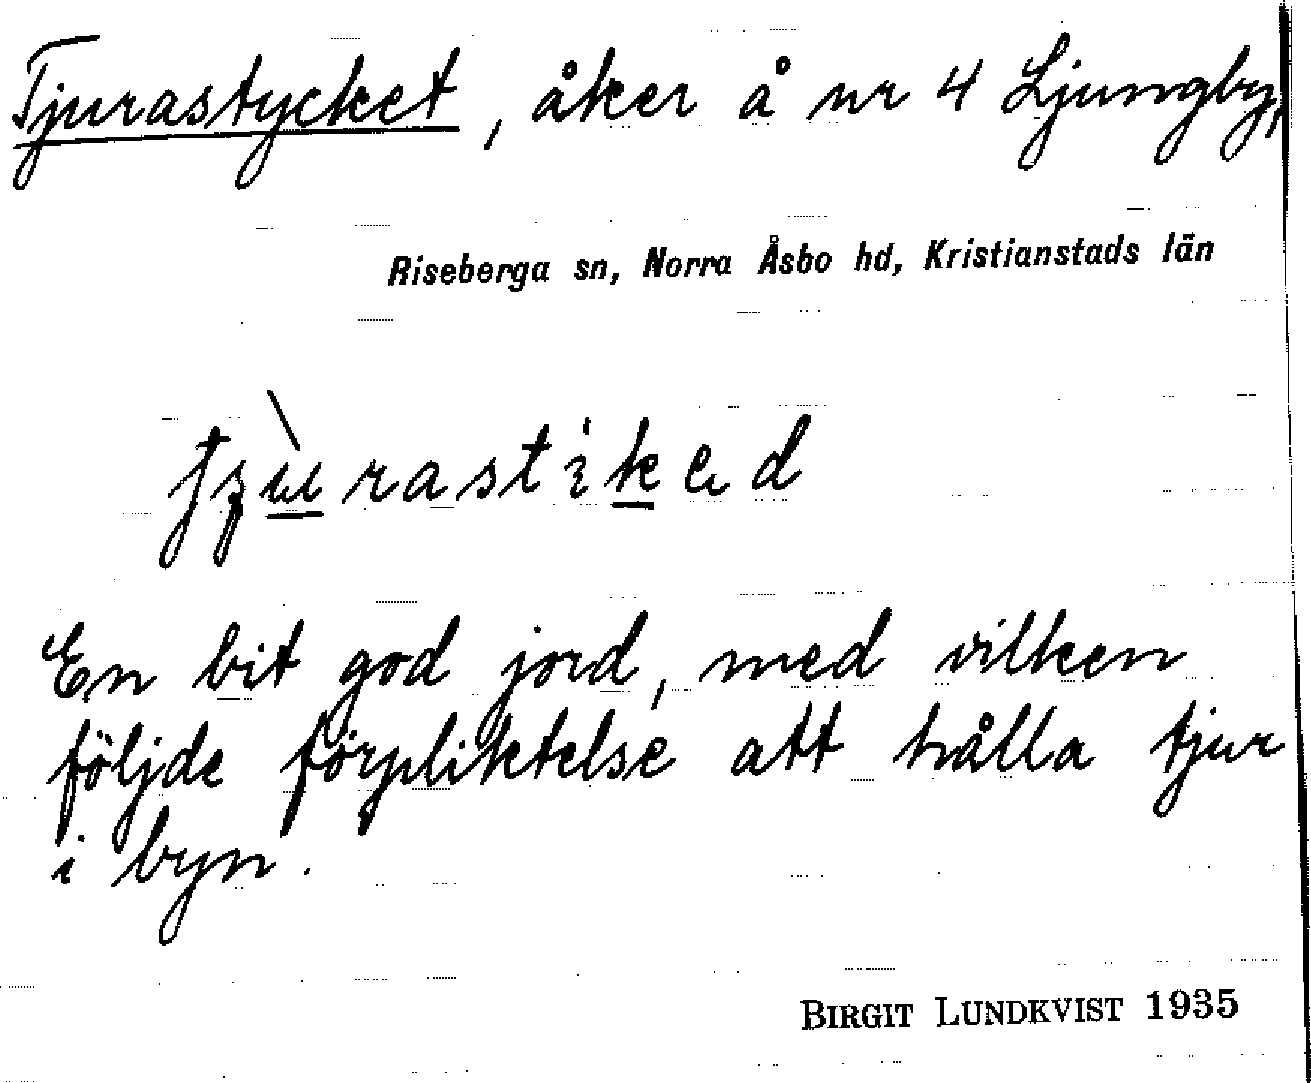 Tjurastycket, åker å nr 4 Ljungby,
Riseberga sn, Norra Åsbo hd, Kristianstads län
En bit god jord, med vilken
följde förpliktelse att hålla tjur
i byn.
BIRGIT LUNDKVIST 1935